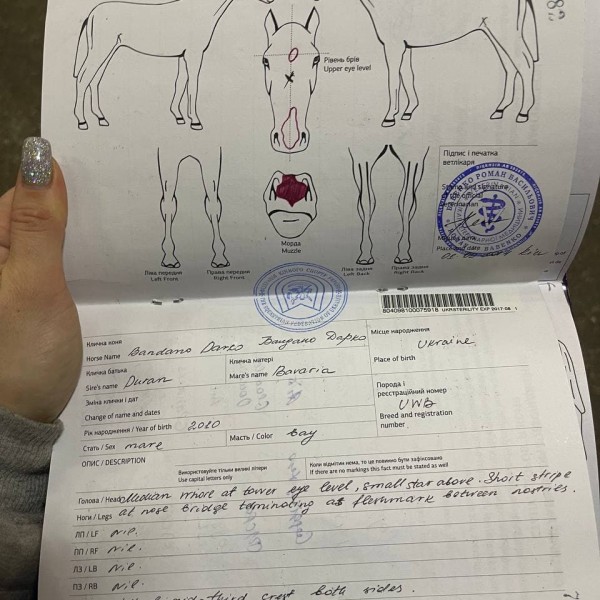 Рівень брів
Upper eye level
Підпис і печатка
ветлікаря
Stamp and signature
Place and date
РОМАН ВАСИЛЬОВИЧ
Ліва передня
Left Front
Права передня
Right Front
Морда
Muzzle
Ліва задня
Left Back
Права задня
Right Back
804098100075918 UKRSTERILITY EXP 2017-08 1
Кличка коня
Horse Name Bandano Darco Бандано Дарко
Місце народження
Ukraine
Place of birth
Кличка батька
Sire's name Duran
Кличка матері
Mare's name Bavaria
Зміна клички / дат
Change of name and dates
Порода і
реєстраційний номер
UWB
Breed and registration
number
Рік народження / Year of birth 2010
Стать / Sex mare
Масть / Color bay
ОПИС / DESCRIPTION
Використовуйте тільки великі літери
Use capital letters only
Коли відмітин нема, то це повинно бути зафіксовано
If there are no markings this fact must be stated as well
Голова / Head Median whorl at lower eye level, small star above. Short stripe
at nose bridge terminating as fleshmark between nostrils.
Ноги / Legs
ЛП / LF Nil.
ПП / RF Nil.
ЛЗ / LB Nil.
ПЗ / RB Nil.
mid-third crest both sides.